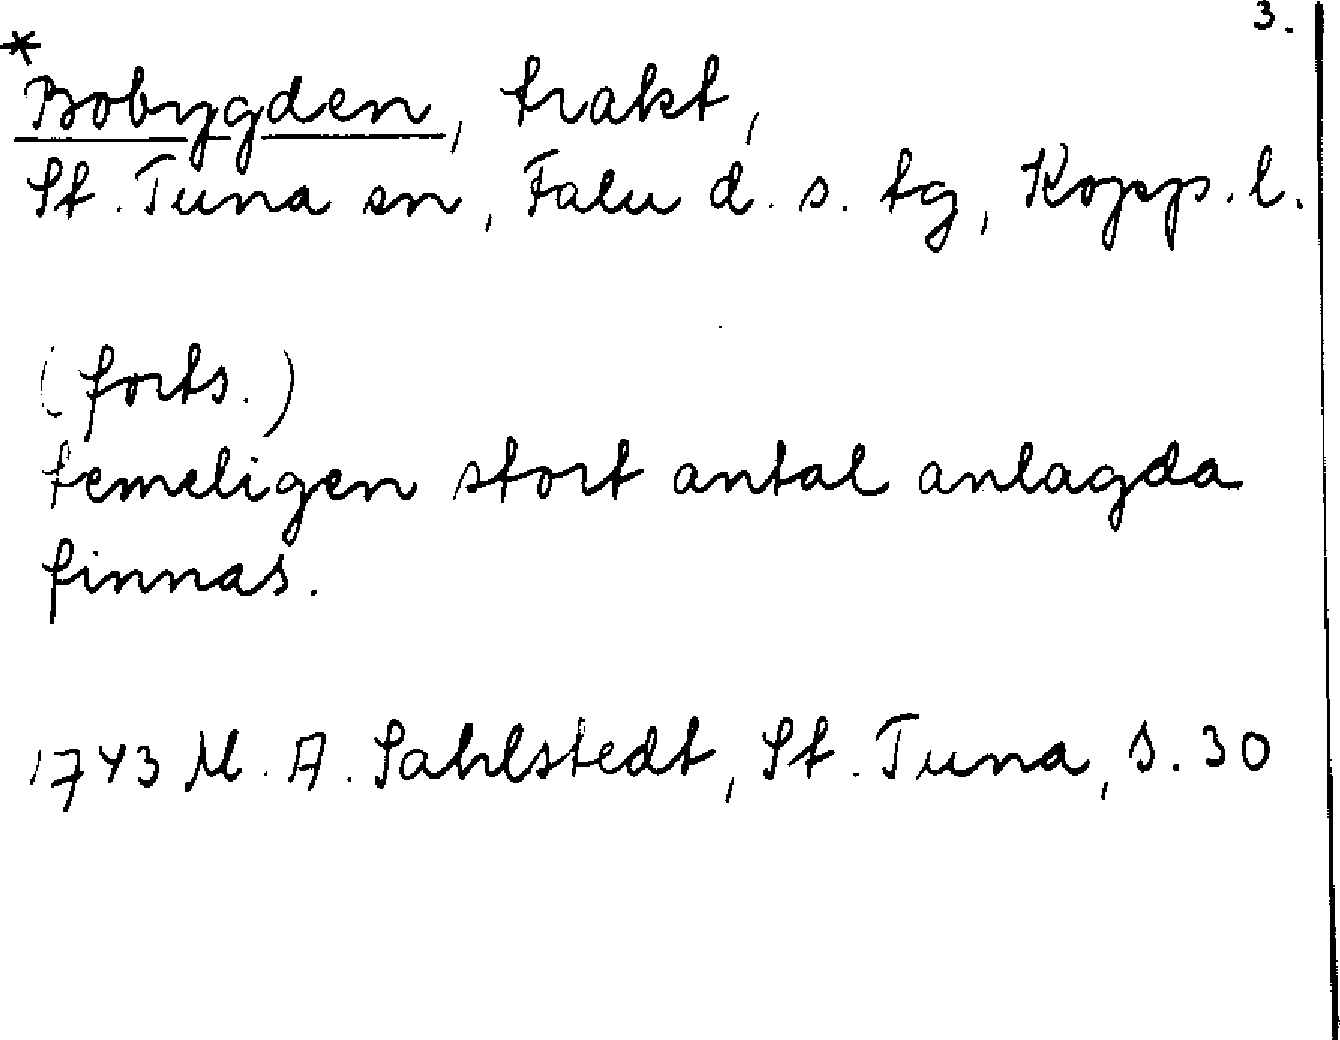 3.
*
Bobygden, trakt,
St. Tuna sn, Falu d. s. tg, Kopp. l.
(forts.)
temeligen stort antal anlagda
finnas.
1743 M. A. Sahlstedt, St. Tuna, s. 30